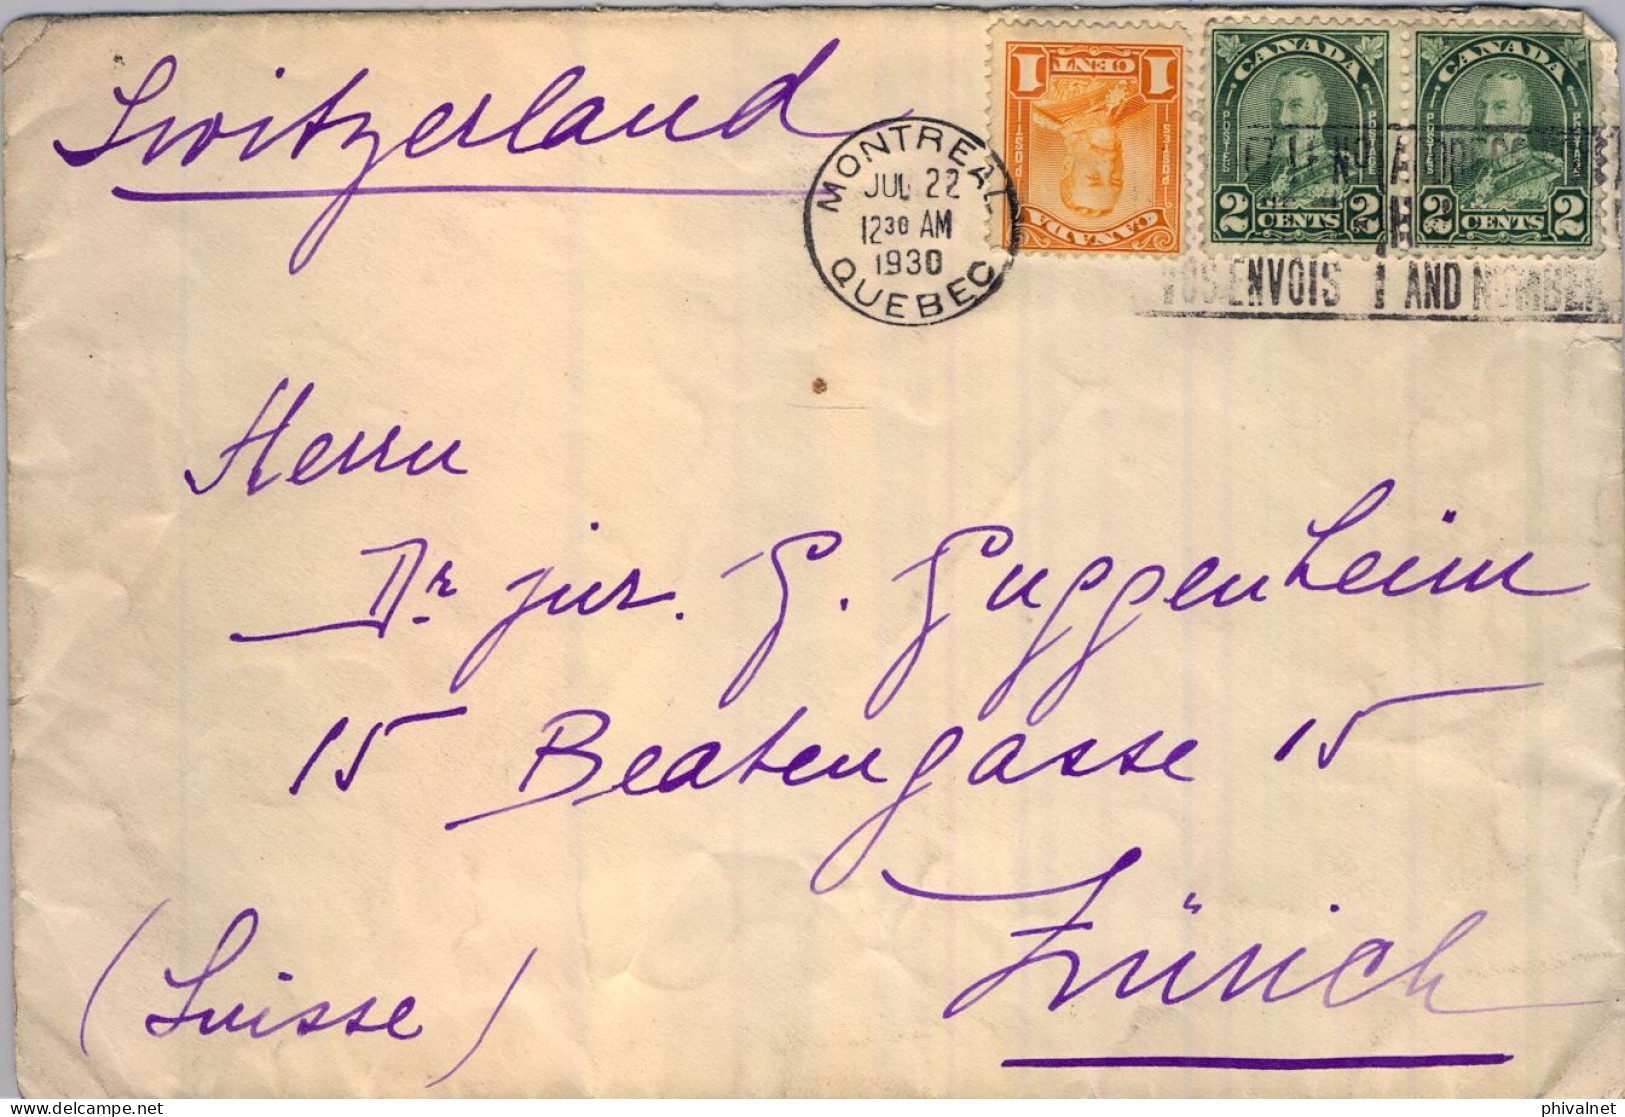 Switzerland
MONTREAL
JUL 22
12 30 AM
1930
QUEBEC
1 CENT 1
POSTES POST
CANADA
CANADA
POSTES POSTAGE
2 CENTS 2
CANADA
POSTES POSTAGE
2 CENTS 2
ADDRESS
ENVOIS AND NUMBER
Herrn
Dr jur. G. Guggenheim
15 Beatengasse 15
Zürich
(Suisse)
phivalnet